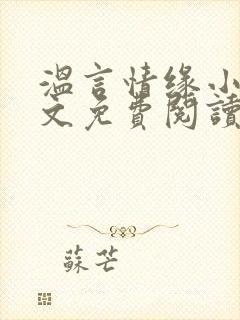 溫言情緣小
文免費閱讀
蘇芒